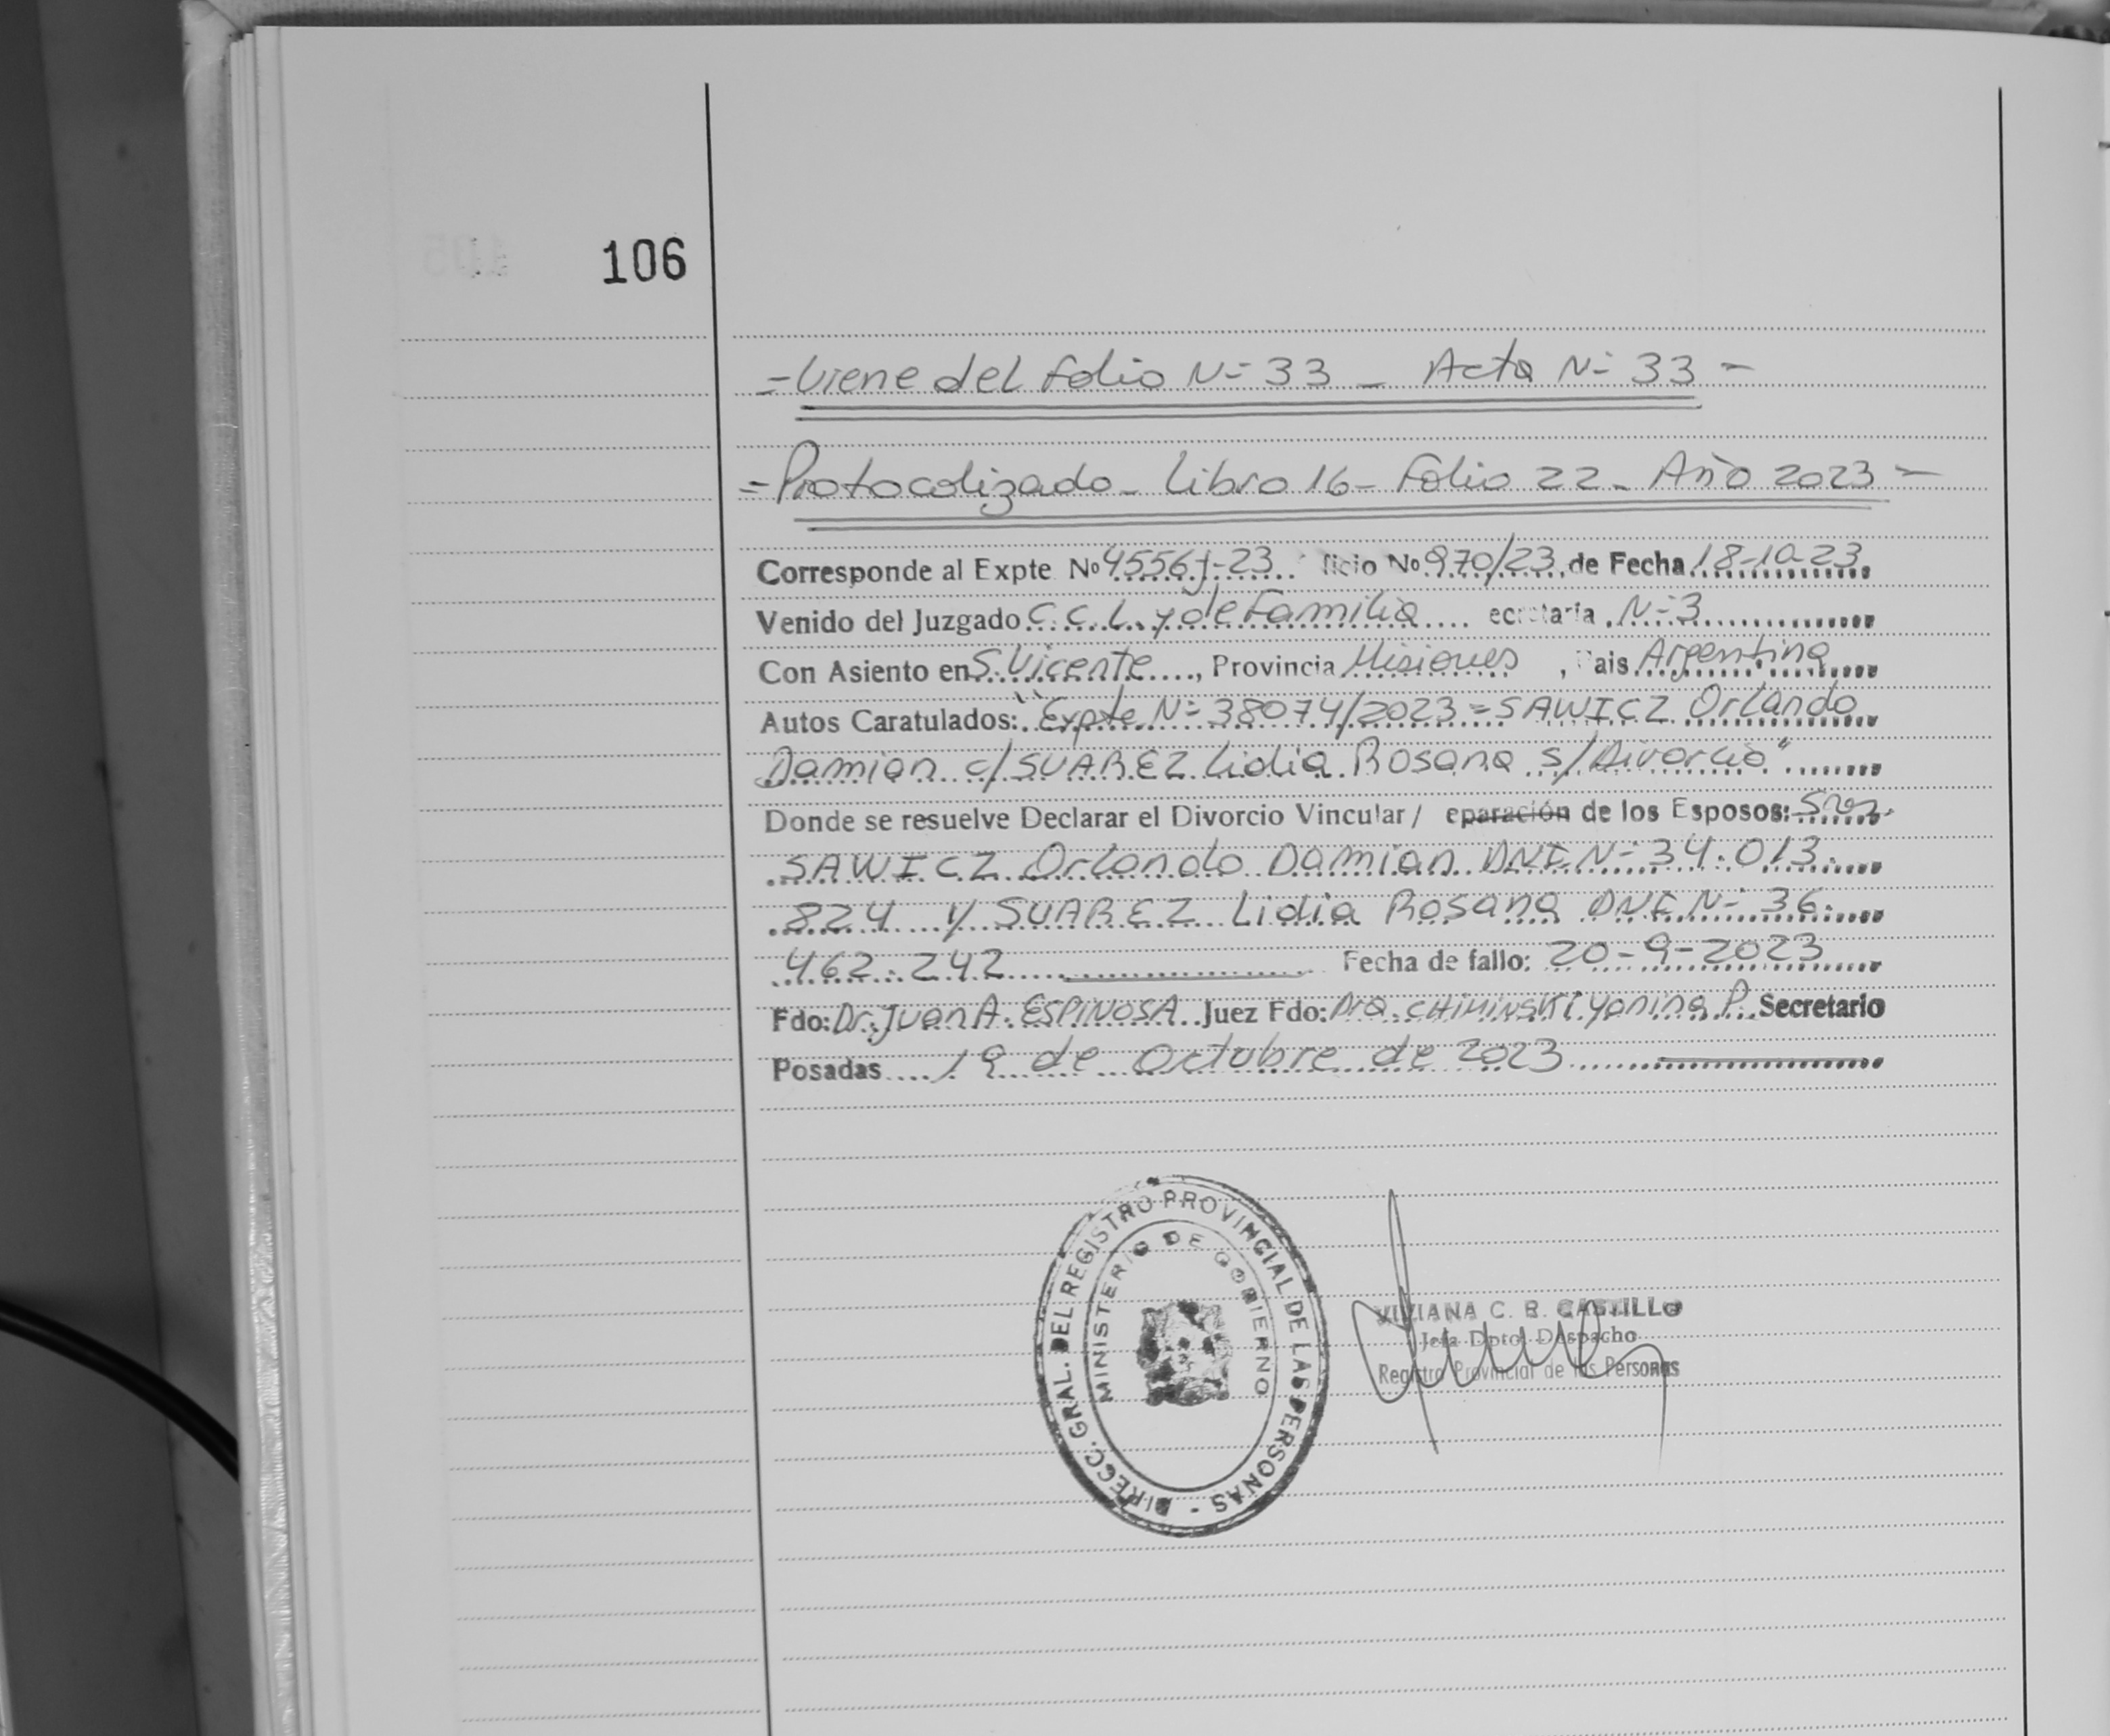 106
=Viene del folio N= 33 _ Acta N= 33 =
=Protocolizado_ Libro 16_ Folio 22_ Año 2023 =
Corresponde al Expte Nº 4556-J-23 ficio Nº 970/23 de Fecha 18-10-23
Venido del Juzgado C.C.L. y de Familia ecretaria N=3
Con Asiento en S. Vicente, Provincia Misiones, Pais Argentina
Autos Caratulados: "Expte N= 38074/2023=SAWICZ Orlando
Damian c/SUAREZ Lidia Rosana s/Divorcio"
Donde se resuelve Declarar el Divorcio Vincular/ eparación de los Esposos:
SAWICZ Orlando Damian DNI N= 34.013.
824 y SUAREZ Lidia Rosana DNI N= 36.
462.242 Fecha de fallo: 20-9-2023
Fdo: Dr. Juan A. ESPINOSA Juez Fdo: Dra. CHIMINSKI Yanina P. Secretario
Posadas 19 de Octubre de 2023
DIRECC. GRAL. DEL REGISTRO PROVINCIAL DE LAS PERSONAS -
MINISTERIO DE GOBIERNO
VIVIANA C. B. CASTILLO
Jefa Dpto. Despacho
Registro Provincial de las Personas